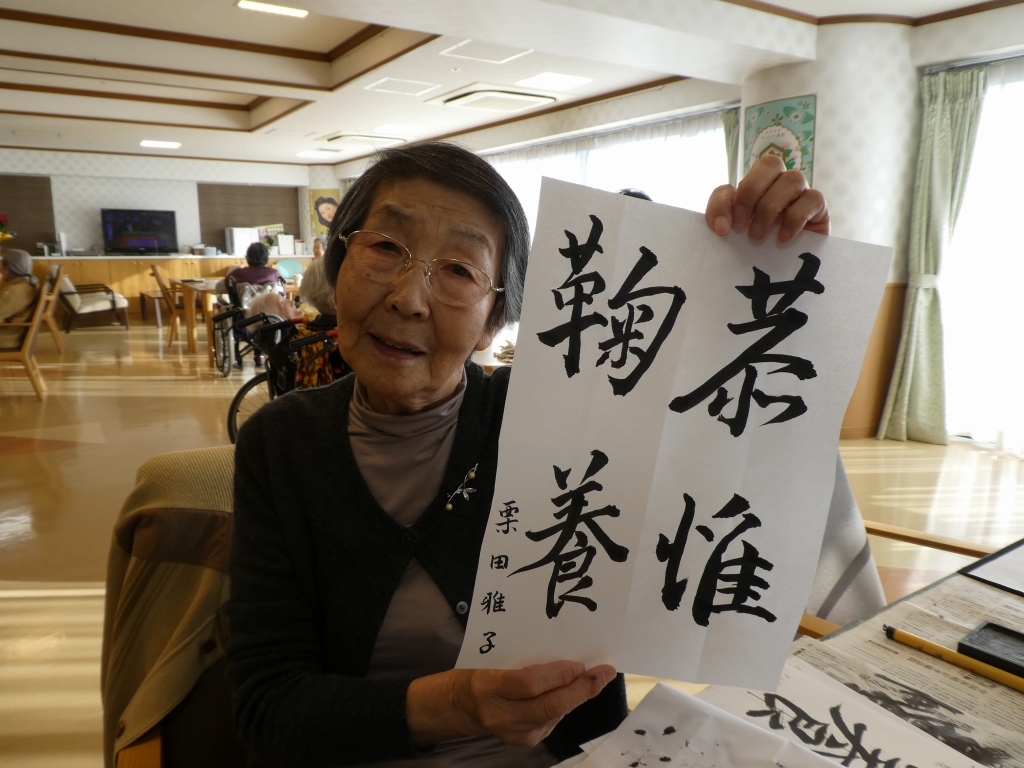 恭惟
鞠養
栗田雅子